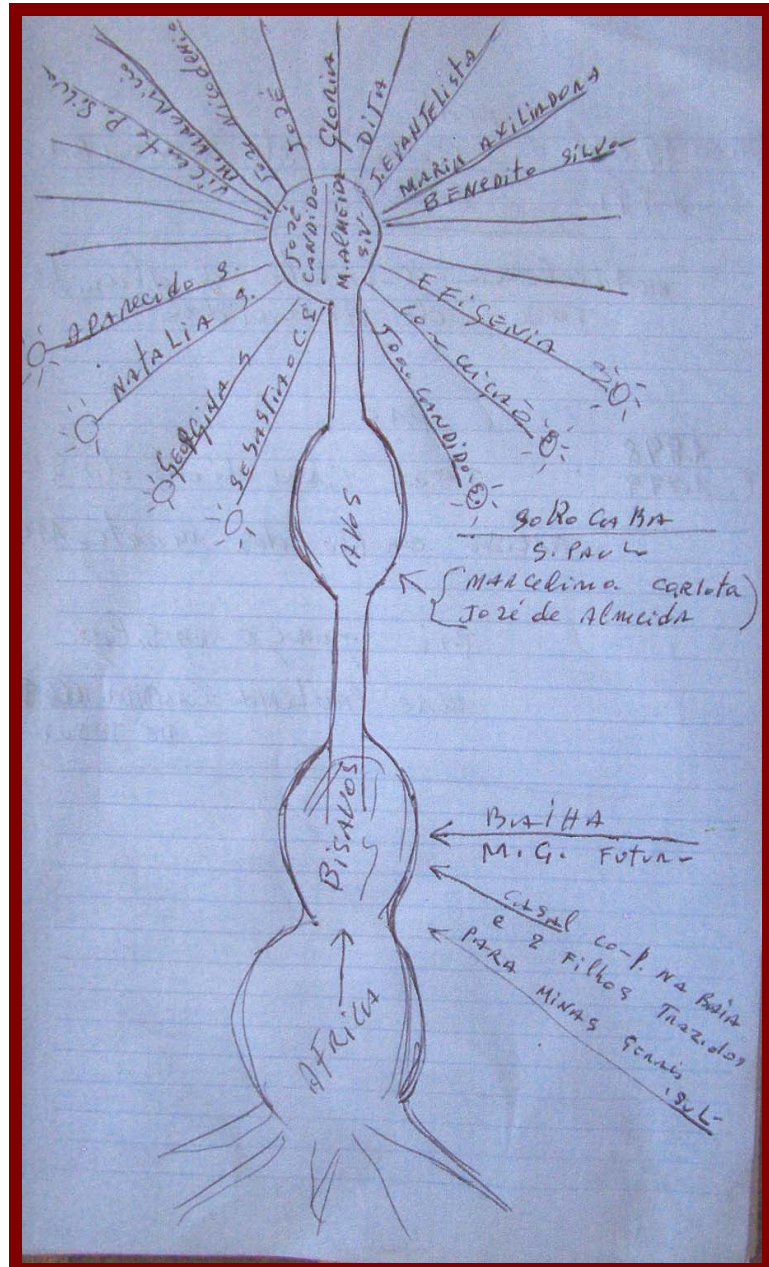 Vicente P. Silva
M. Mauricia
José Nicodemio
JOZÉ
GLORIA
DITA
J. EVANTELISTA
MARIA AXILIADORA
BENEDITO SILVA
JOZÉ
CANDIDO
M. ALMEIDA
SIV.
APARECIDO S.
NATALIA S.
GEORGINA S
SEBASTIAO C. S.
EFIGENIA
CONCEIÇÃO
JOAO CANDIDO S.
AVOS
SOROCABA
S. PAUL
MARCELINA CARLOTA
JOZÉ de ALMEIDA
BISAVOS
BAIHA
M. G. FUTUR
CASAL CO-P. NA BAIA
e 2 FILHOS TRAZIDOS
PARA MINAS GERAIS
SUL
AFRICA